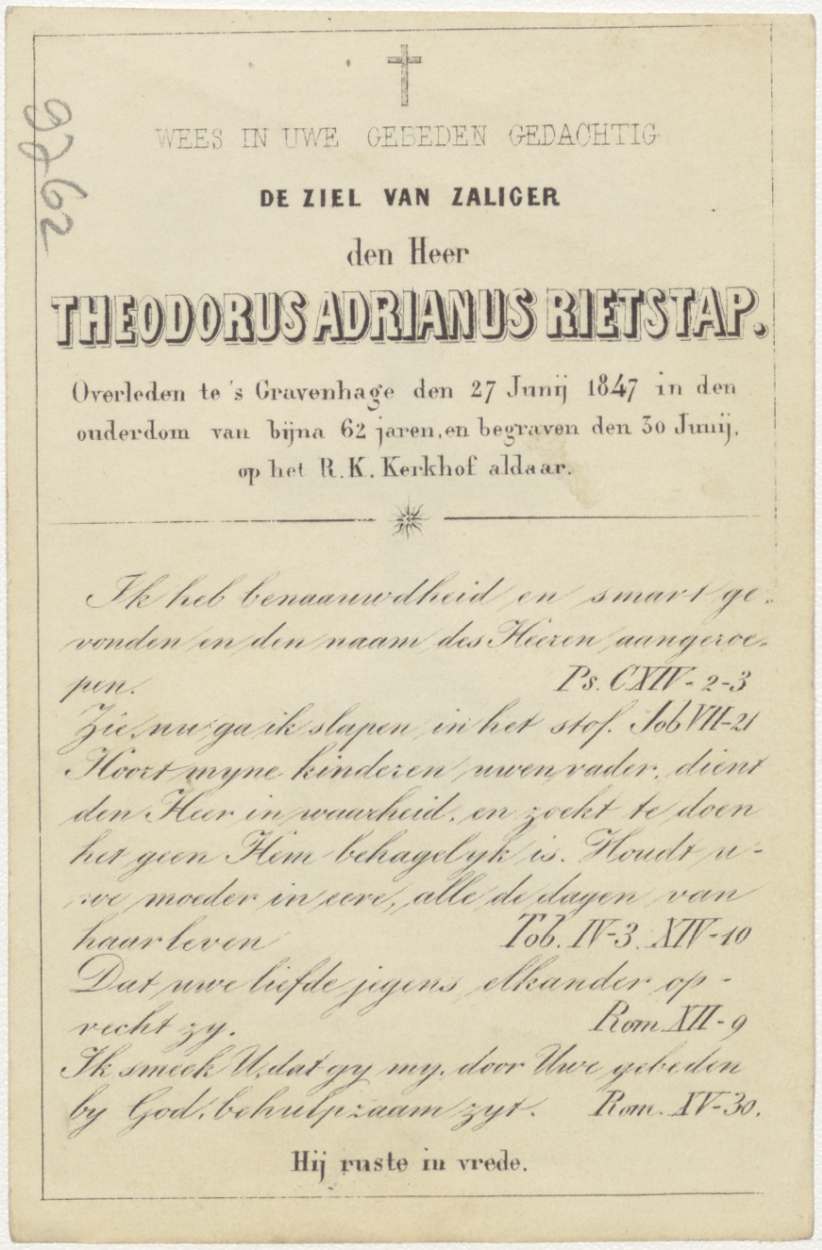 9862
WEES IN UWE GEBEDEN GEDACHTIG
DE ZIEL VAN ZALIGER
den Heer
THEODORUS ADRIANUS RIETSTAP.
Overleden te 's Gravenhage den 27 Junij 1847 in den
ouderdom van bijna 62 jaren, en begraven den 30 Junij,
op het R.K. Kerkhof aldaar.
Ik heb benaauwdheid en smart ge-
vonden en den naam des Heeren aangeroe-
pen. Ps. CXIV-2-3
Zie, nu ga ik slapen in het stof. Job VII-21
Hoort myne kinderen uwen vader, dient
den Heer in waarheid, en zoekt te doen
het geen Hem behagelyk is. Houdt u-
we moeder in eere, alle de dagen van
haar leven Tob. IV-3. XIV-10
Dat uwe liefde jegens elkander op-
recht zy. Rom. XII-9
Ik smeek U, dat gy my, door Uwe gebeden
by God, behulpzaam zyt. Rom. XV-30.
Hij ruste in vrede.